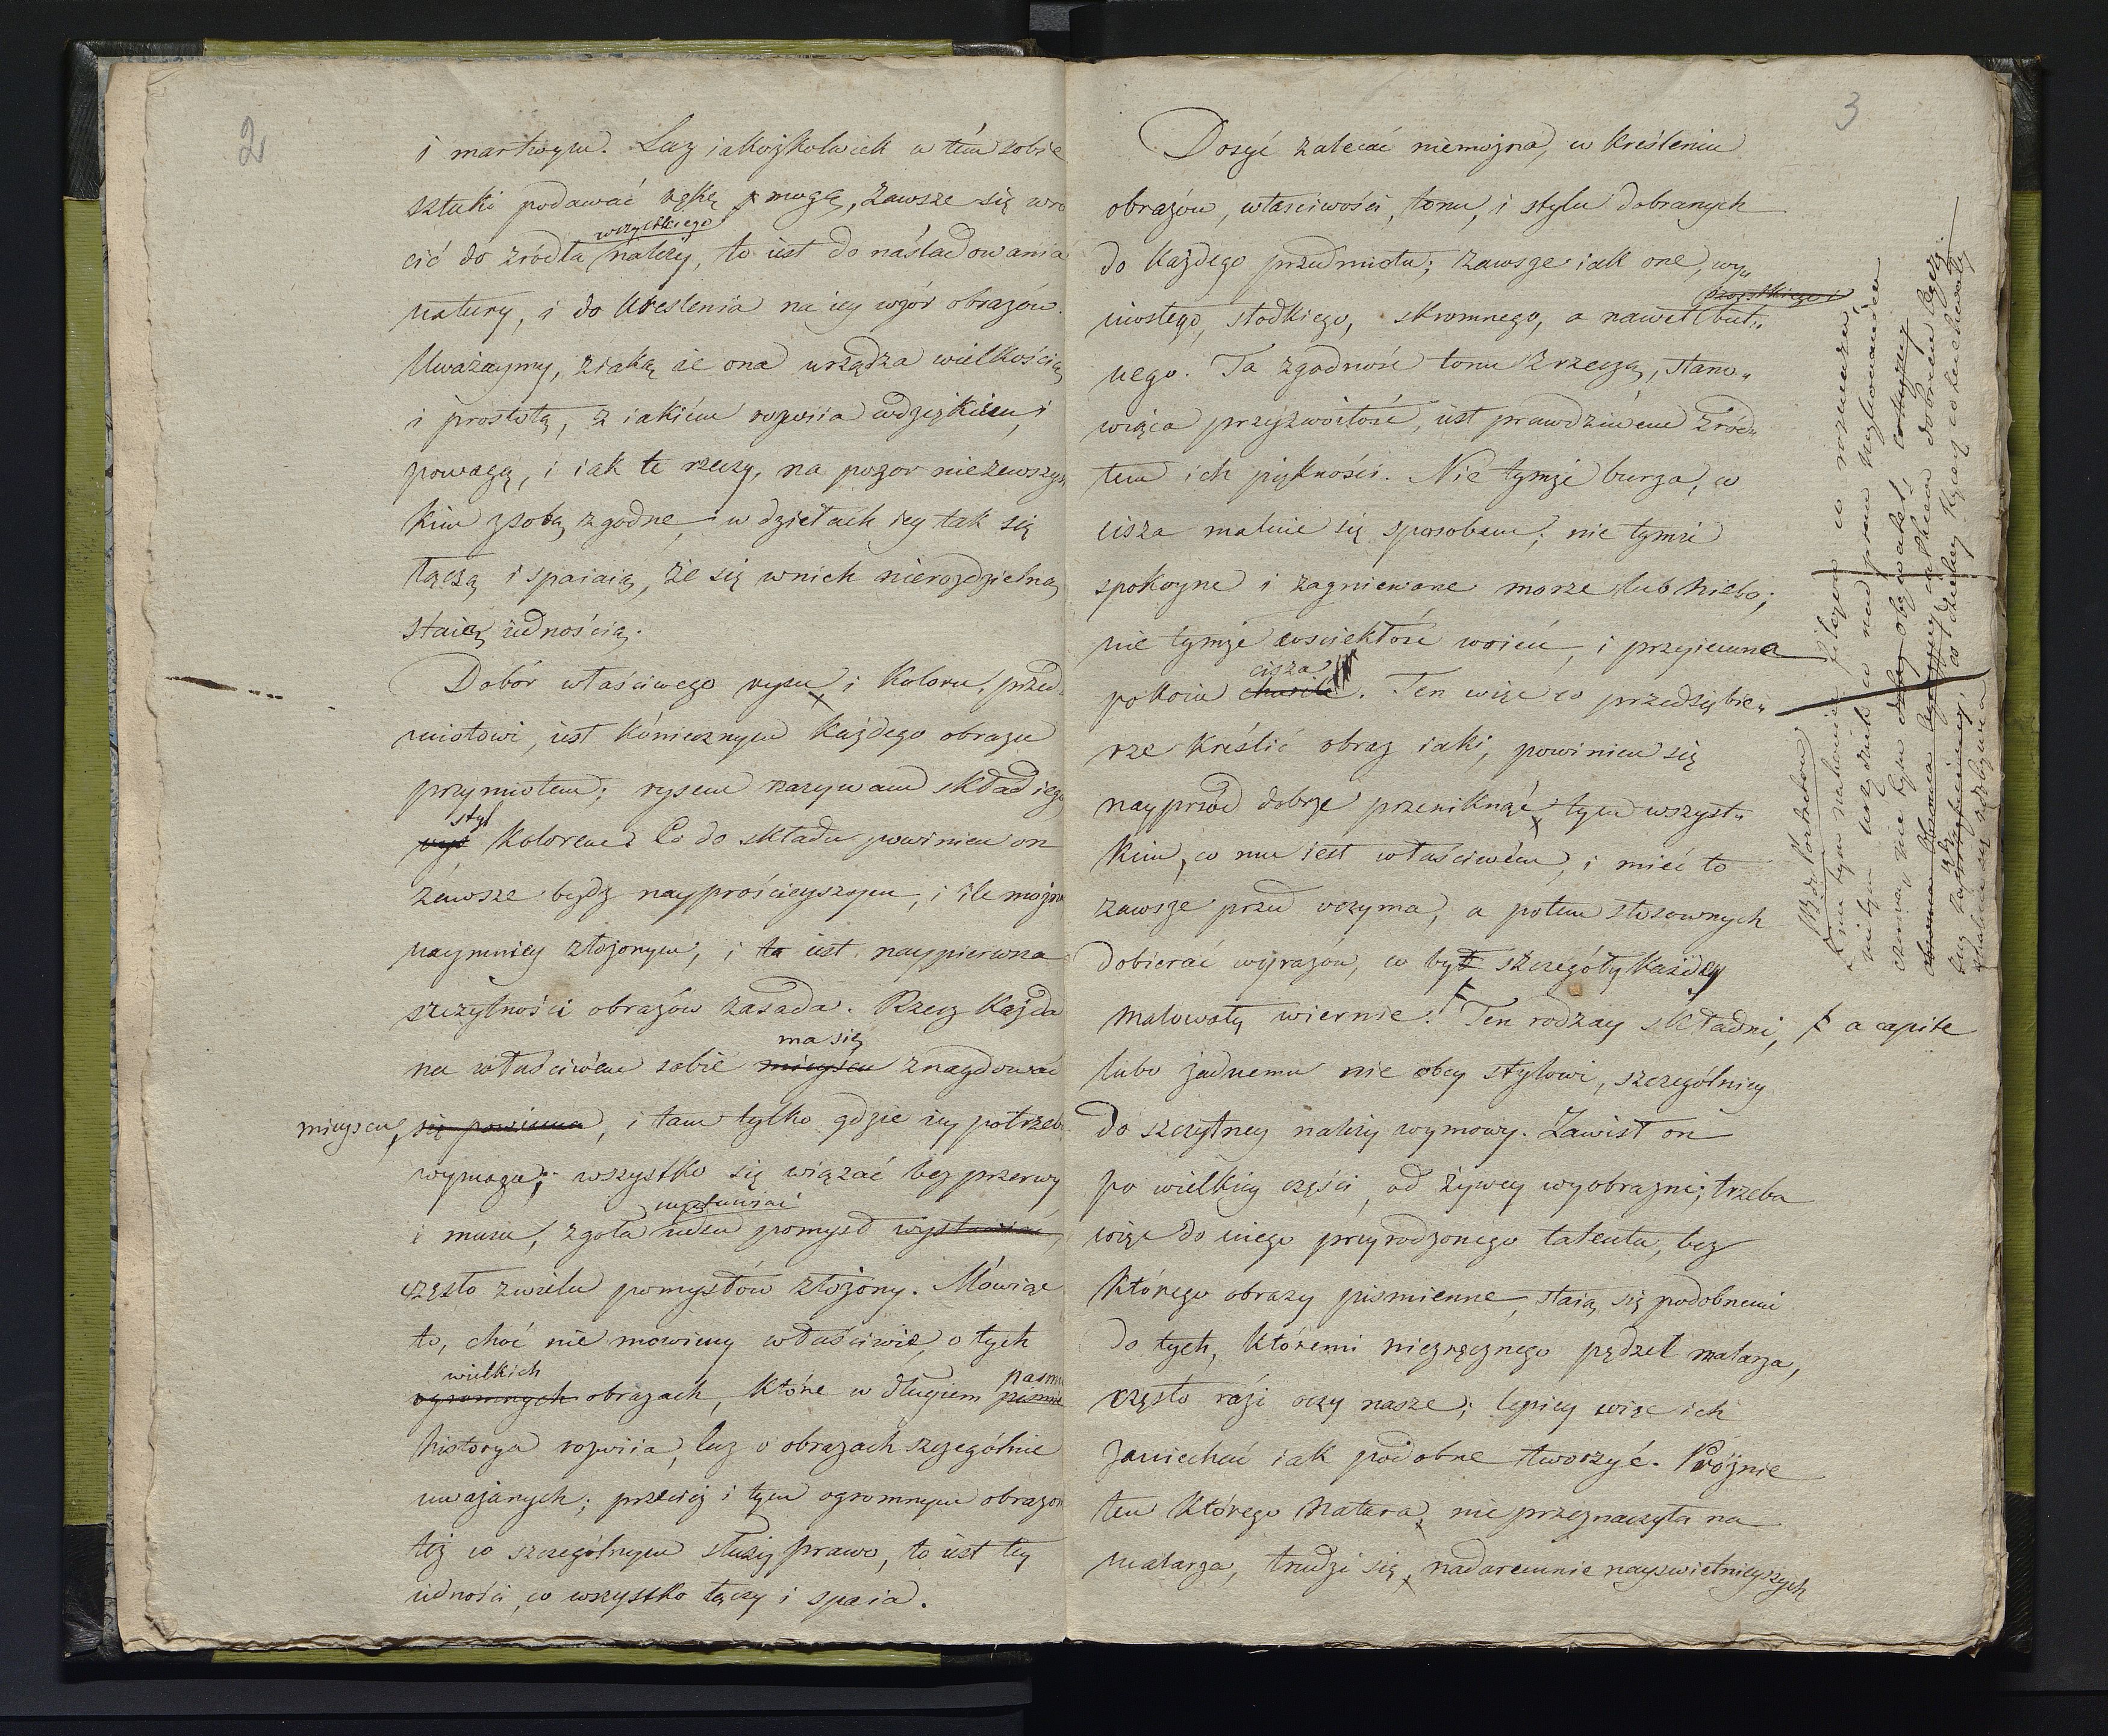 2
i martwym. Lecz iakożkolwiek w tém sobie
sztuki podawać rękę mogą, zawsze się wro
wszystkiego
cić do źródła należy, to iest do naśladowania
natury, i do kreslenia na iey wzór obrazów.
Uważaymy, z iaką ie ona urządza wielkością
i prostotą, z iakiém rozwiia wdziękiem, i
powagą, i iak te rzeczy, na pozor niezewszyst
kim z sobą zgodne, w dziełach iey tak się
łączą i spaiaią, że się w nich nierozdzielną
staią iednością.
Dobór właściwego rysu, i koloru, przed
miotowi, iest koniecznym każdego obrazu
przymiotem; rysem nazywam skład iego
styl
kolorem. Co do składu powinien on
zawsze bydź nayprościeyszym, i ile można
naymniey złożonym; i ta iest naypierwsza
szczytności obrazów zasada. Rzecz każda
ma się
na właściwém sobie mieyscu znaydować
mieyscu, się powinna, i tam tylko gdzie iey potrzeba
wymaga; wszystko się wiązać bez przerwy
wystawiać
i musu, zgoła ieden pomysł wystawiać,
często z wielu pomysłów złożony. Mówiąc
to, choć nie mowimy właściwie o tych
wielkich pasmie
ogromnych obrazach, które w długiem pismie
historya rozwiia, lecz o obrazach szczególnie
uważanych; przecież i tym ogromnym obrazom
też co szczególnym służy prawo, to iest tey
iedności, co wszystko łączy i spaia.
3
Dosyć zalecać niemożna, w kreśleniu
obrazów, właściwości, tonu, i stylu dobranych
do każdego przedmiotu; zawsze iak one, wy„
niosłego, słodkiego, skromnego, a nawet but„
nego. Ta zgodność tonu z rzeczą, stano„
wiąca przyzwoitość, iest prawdziwem źród„
łem ich piękności. Nie tymże burza, co
cisza maluie się sposobem; nie tymże
spokoyne i zagniewane morze lub niebo;
nie tymże wsciekłość woien, i przyiemna
cisza
pokoiu chwila. Ten więc co przedsiębie„
rze kreślić obraz iaki, powinien się
nayprzód dobrze przeniknąć, tym wszyst„
kiem, co mu iest właściwém, i mieć to
zawsze przed oczyma, a potem stosownych
dobierać wyrazów, co by szczegóły każdey
malowały wiernie. Ten rodzay składni, a capite
lubo żadnemu nie obcy stylowi, szczególniey
do szczytney należy wymowy. Zawisł on
po wielkiey części, od żywey wyobraźni; trzeba
więc do niego przyrodzonego talentu, bez
którego obrazy pismienne, staią się podobnemi
do tych, któremi niezręcznego pędzel malarza,
często razi oczy nasze; lepiey więc ich
zaniechać iak podobne tworzyć. Próżnie
ten którego natura, nie przeznaczyła na
malarza, trudzi się, nadaremnie nayświetnieyszych
NB. do Portretów